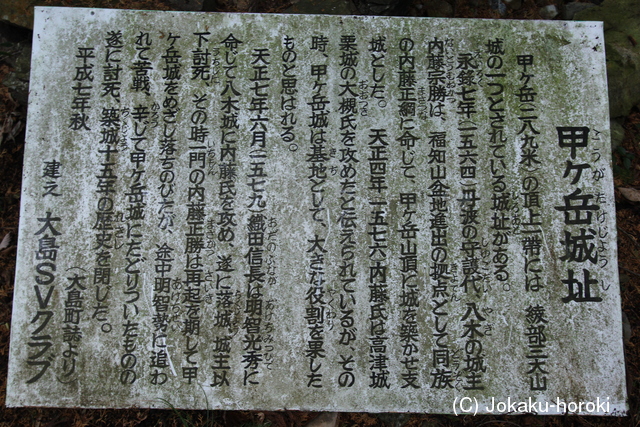 甲ヶ岳城址
こうがたけじょうし
甲ヶ岳（二八九米）の頂上一帯には 綾部三大山
城の一つとされている城址がある。
永録七年（一五六四）丹波の守護代、八木の城主
内藤宗勝は、福知山盆地進出の拠点として同族
の内藤正綱に命じて、甲ヶ岳山頂に城を築かせ支
城とした。 天正四年（一五七六）内藤氏は高津城
栗城の大槻氏を攻めたと伝えられているが その
時、甲ヶ岳城は基地として、大きな役割を果した
ものと思はれる。
天正七年六月（一五七九）織田信長は明智光秀に
命じて八木城に内藤氏を攻め、遂に落城、城主以
下討死 その時一門の内藤正勝は再起を期して甲
ヶ岳城をめざし落ちのびたが、途中明智勢に追わ
れて苦戦、辛して甲ヶ岳城にたどりついたものの
遂に討死、築城十五年の歴史を閉した。
（大島町誌より）
平成七年秋
建之 大島SVクラブ
(C) Jokaku-horoki